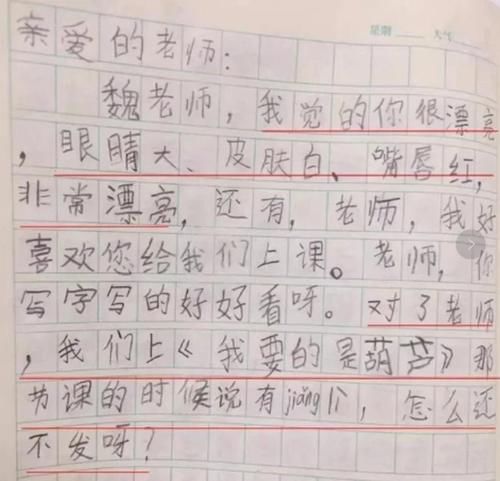 星期 天气
亲爱的老师：
魏老师，我觉的你很漂亮
，眼睛大、皮肤白、嘴唇红，
非常漂亮，还有，老师，我好
喜欢您给我们上课。老师，你
写字写的好好看呀。对了老师
，我们上《我要的是葫芦》那
节课的时候说有jiǎnglì，怎么还
不发呀？